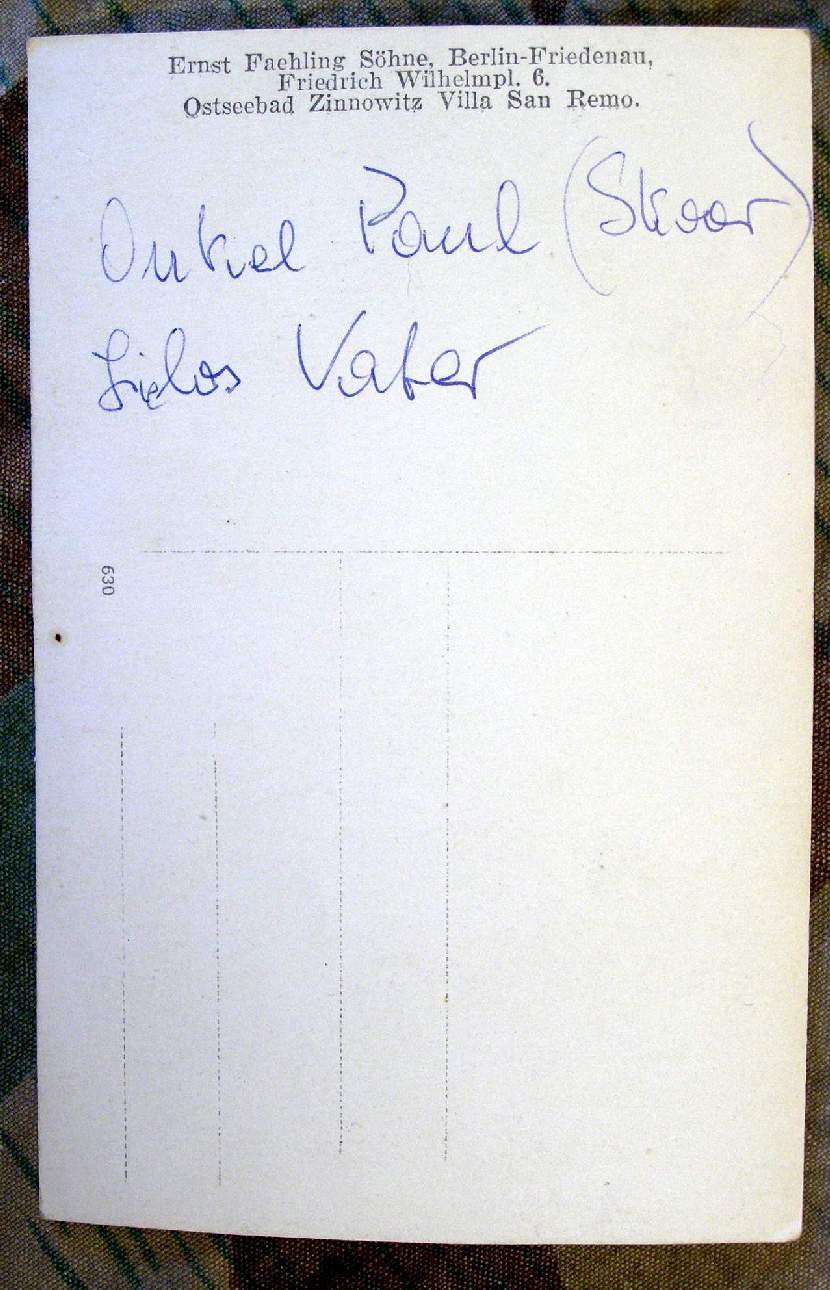 Ernst Faehling Söhne, Berlin-Friedenau,
Friedrich Wilhelmpl. 6.
Ostseebad Zinnowitz Villa San Remo.
Onkel Paul (Skoor)
Vater
630